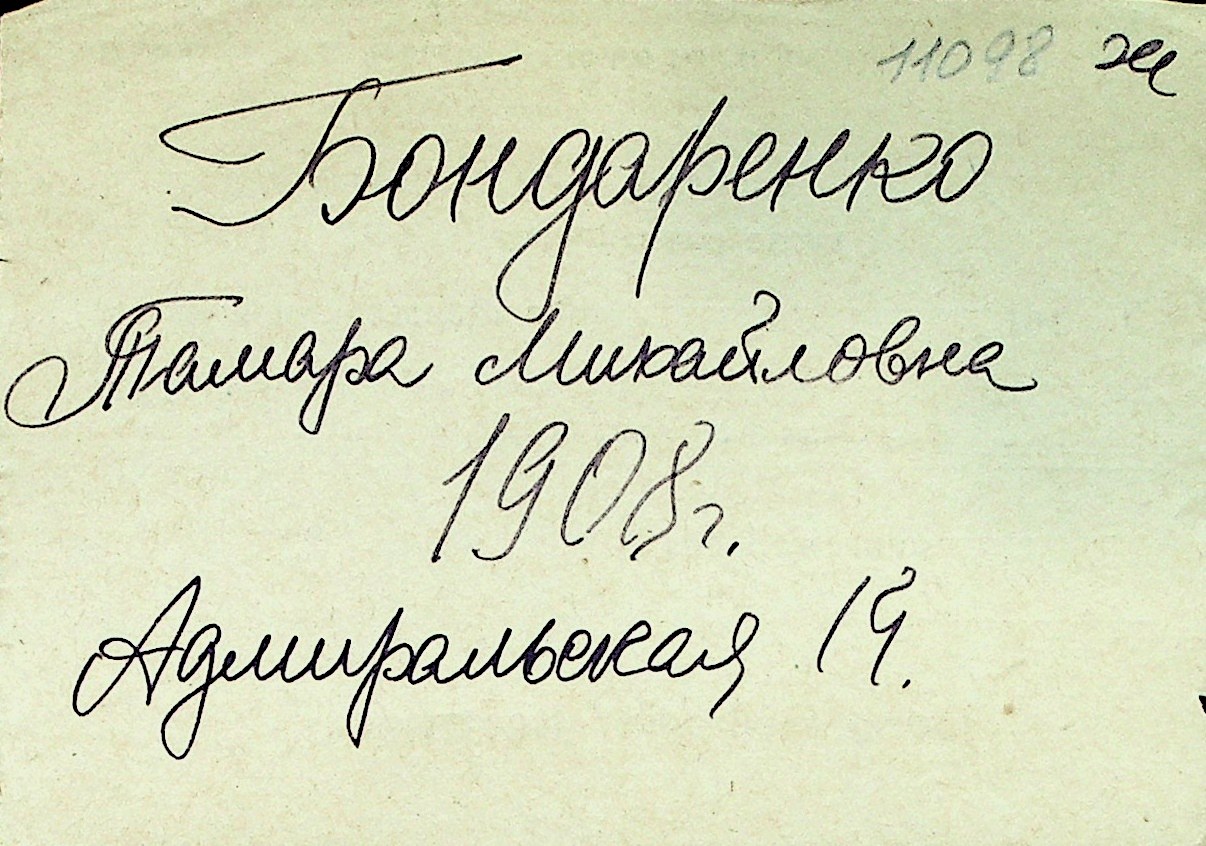 11098 ж
Бондаренко
Тамара Михайловна
1908 г.
Адмиральская 14.